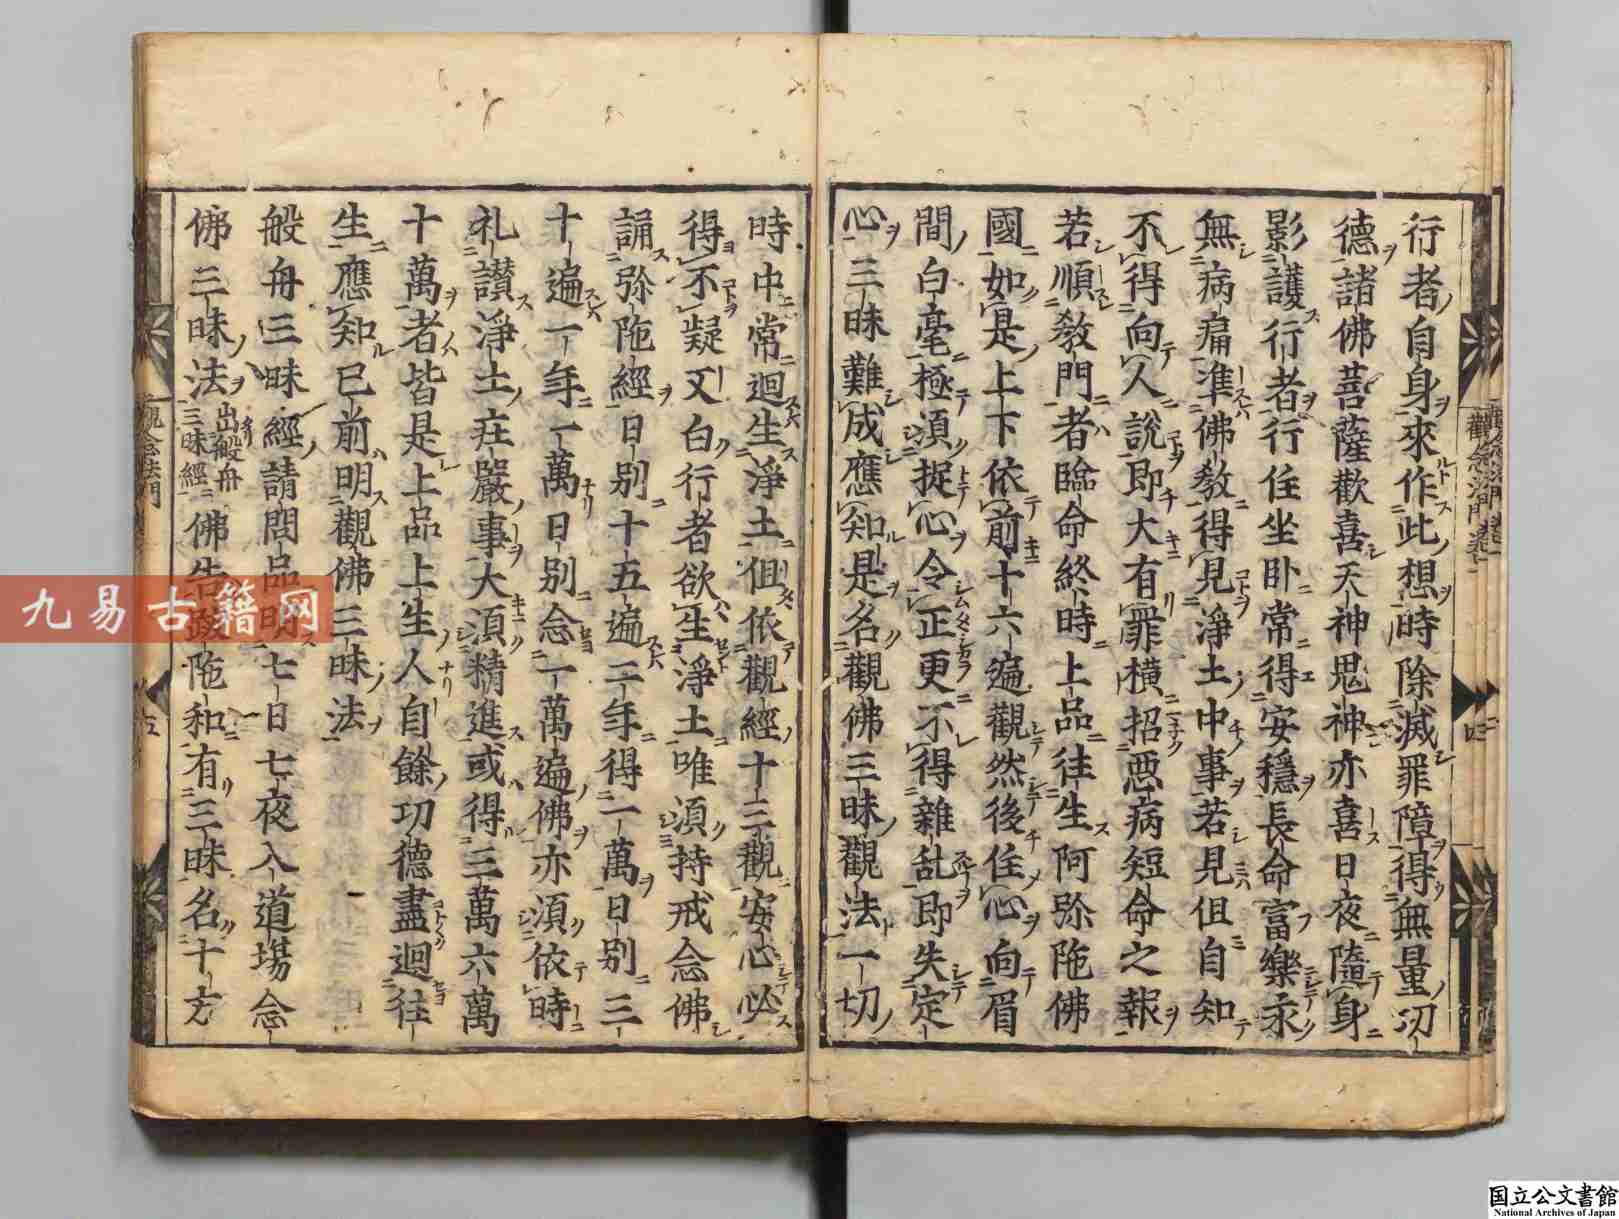 行者自身來作此想時除滅罪障得無量功
德諸佛菩薩歡喜天神鬼神亦喜日夜隨身
影護行者行住坐卧常得安穩長命富樂永
無病痛准佛教得見淨土中事若見但自知
不得向人說即大有罪橫招惡病短命之報
若順教門者臨命終時上品往生阿弥陁佛
國如是上下依前十六遍觀然後住心向眉
間白毫極湏捉心令正更不得雜乱即失定
心三昧難成應知是名觀佛三昧觀法一切
時中常迴生淨土但依觀經十三觀安心必
得不疑又白行者欲生淨土唯湏持戒念佛
誦弥陁經日別十五遍二年得一萬日別三
十遍一年一萬日別念一萬遍佛亦湏依時
礼讃淨土荘嚴事大湏精進或得三萬六萬
十萬者皆是上品上生人自餘功德盡迴往
生應知已前明觀佛三昧法
般舟三昧經請問品明七日七夜入道場念
佛三昧法出般舟三昧經佛告跋陁和有三昧名十方
觀念法門
四
五
九易古籍网
国立公文書館
National Archives of Japan